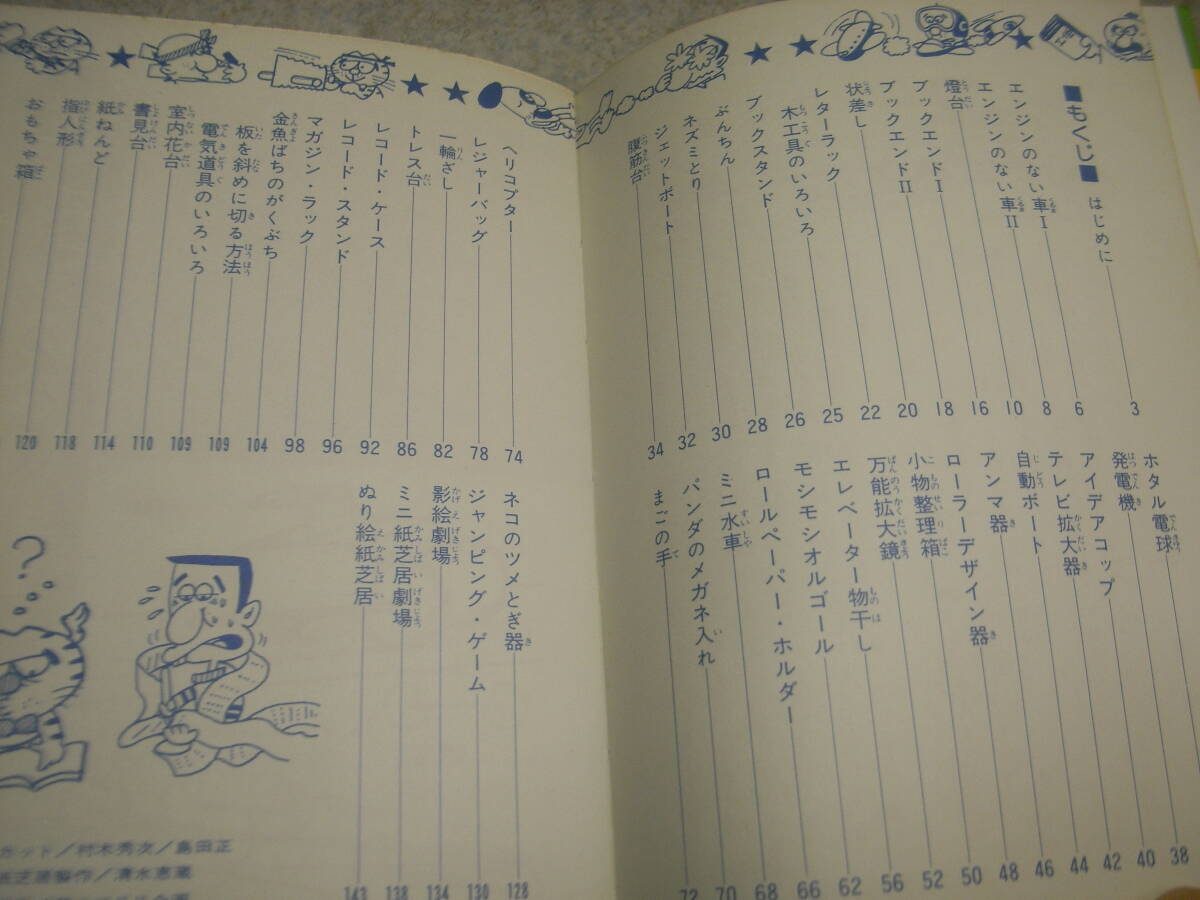 ■もくじ■
はじめに 3
エンジンのない車I 6
エンジンのない車II 8
燈台 10
ブックエンドI 16
ブックエンドII 18
状差し 20
レターラック 22
木工具のいろいろ 25
ブックスタンド 26
ぶんちん 28
ネズミとり 30
ジェットボート 32
腹筋台 34
ホタル電球 38
発電機 40
アイデアコップ 42
テレビ拡大器 44
自動ボート 46
アンマ器 48
ローラーデザイン器 50
小物整理箱 52
万能拡大鏡 56
エレベーター物干し 62
モシモシオルゴール 66
ロールペーパー・ホルダー 68
ミニ水車 70
パンダのメガネ入れ 72
まごの手
ヘリコプター 74
レジャーバッグ 78
一輪ざし 82
トレス台 86
レコード・ケース 92
レコード・スタンド 96
マガジン・ラック 98
金魚ばちのがくぶち 104
板を斜めに切る方法 109
電気道具のいろいろ 109
室内花台 110
書見台 114
紙ねんど 118
指人形 120
おもちゃ箱
ネコのツメとぎ器 128
ジャンピング・ゲーム 130
影絵劇場 134
ミニ紙芝居劇場 138
ぬり絵紙芝居 143
カット/村木秀次/島田正
紙芝居製作/清水恵蔵